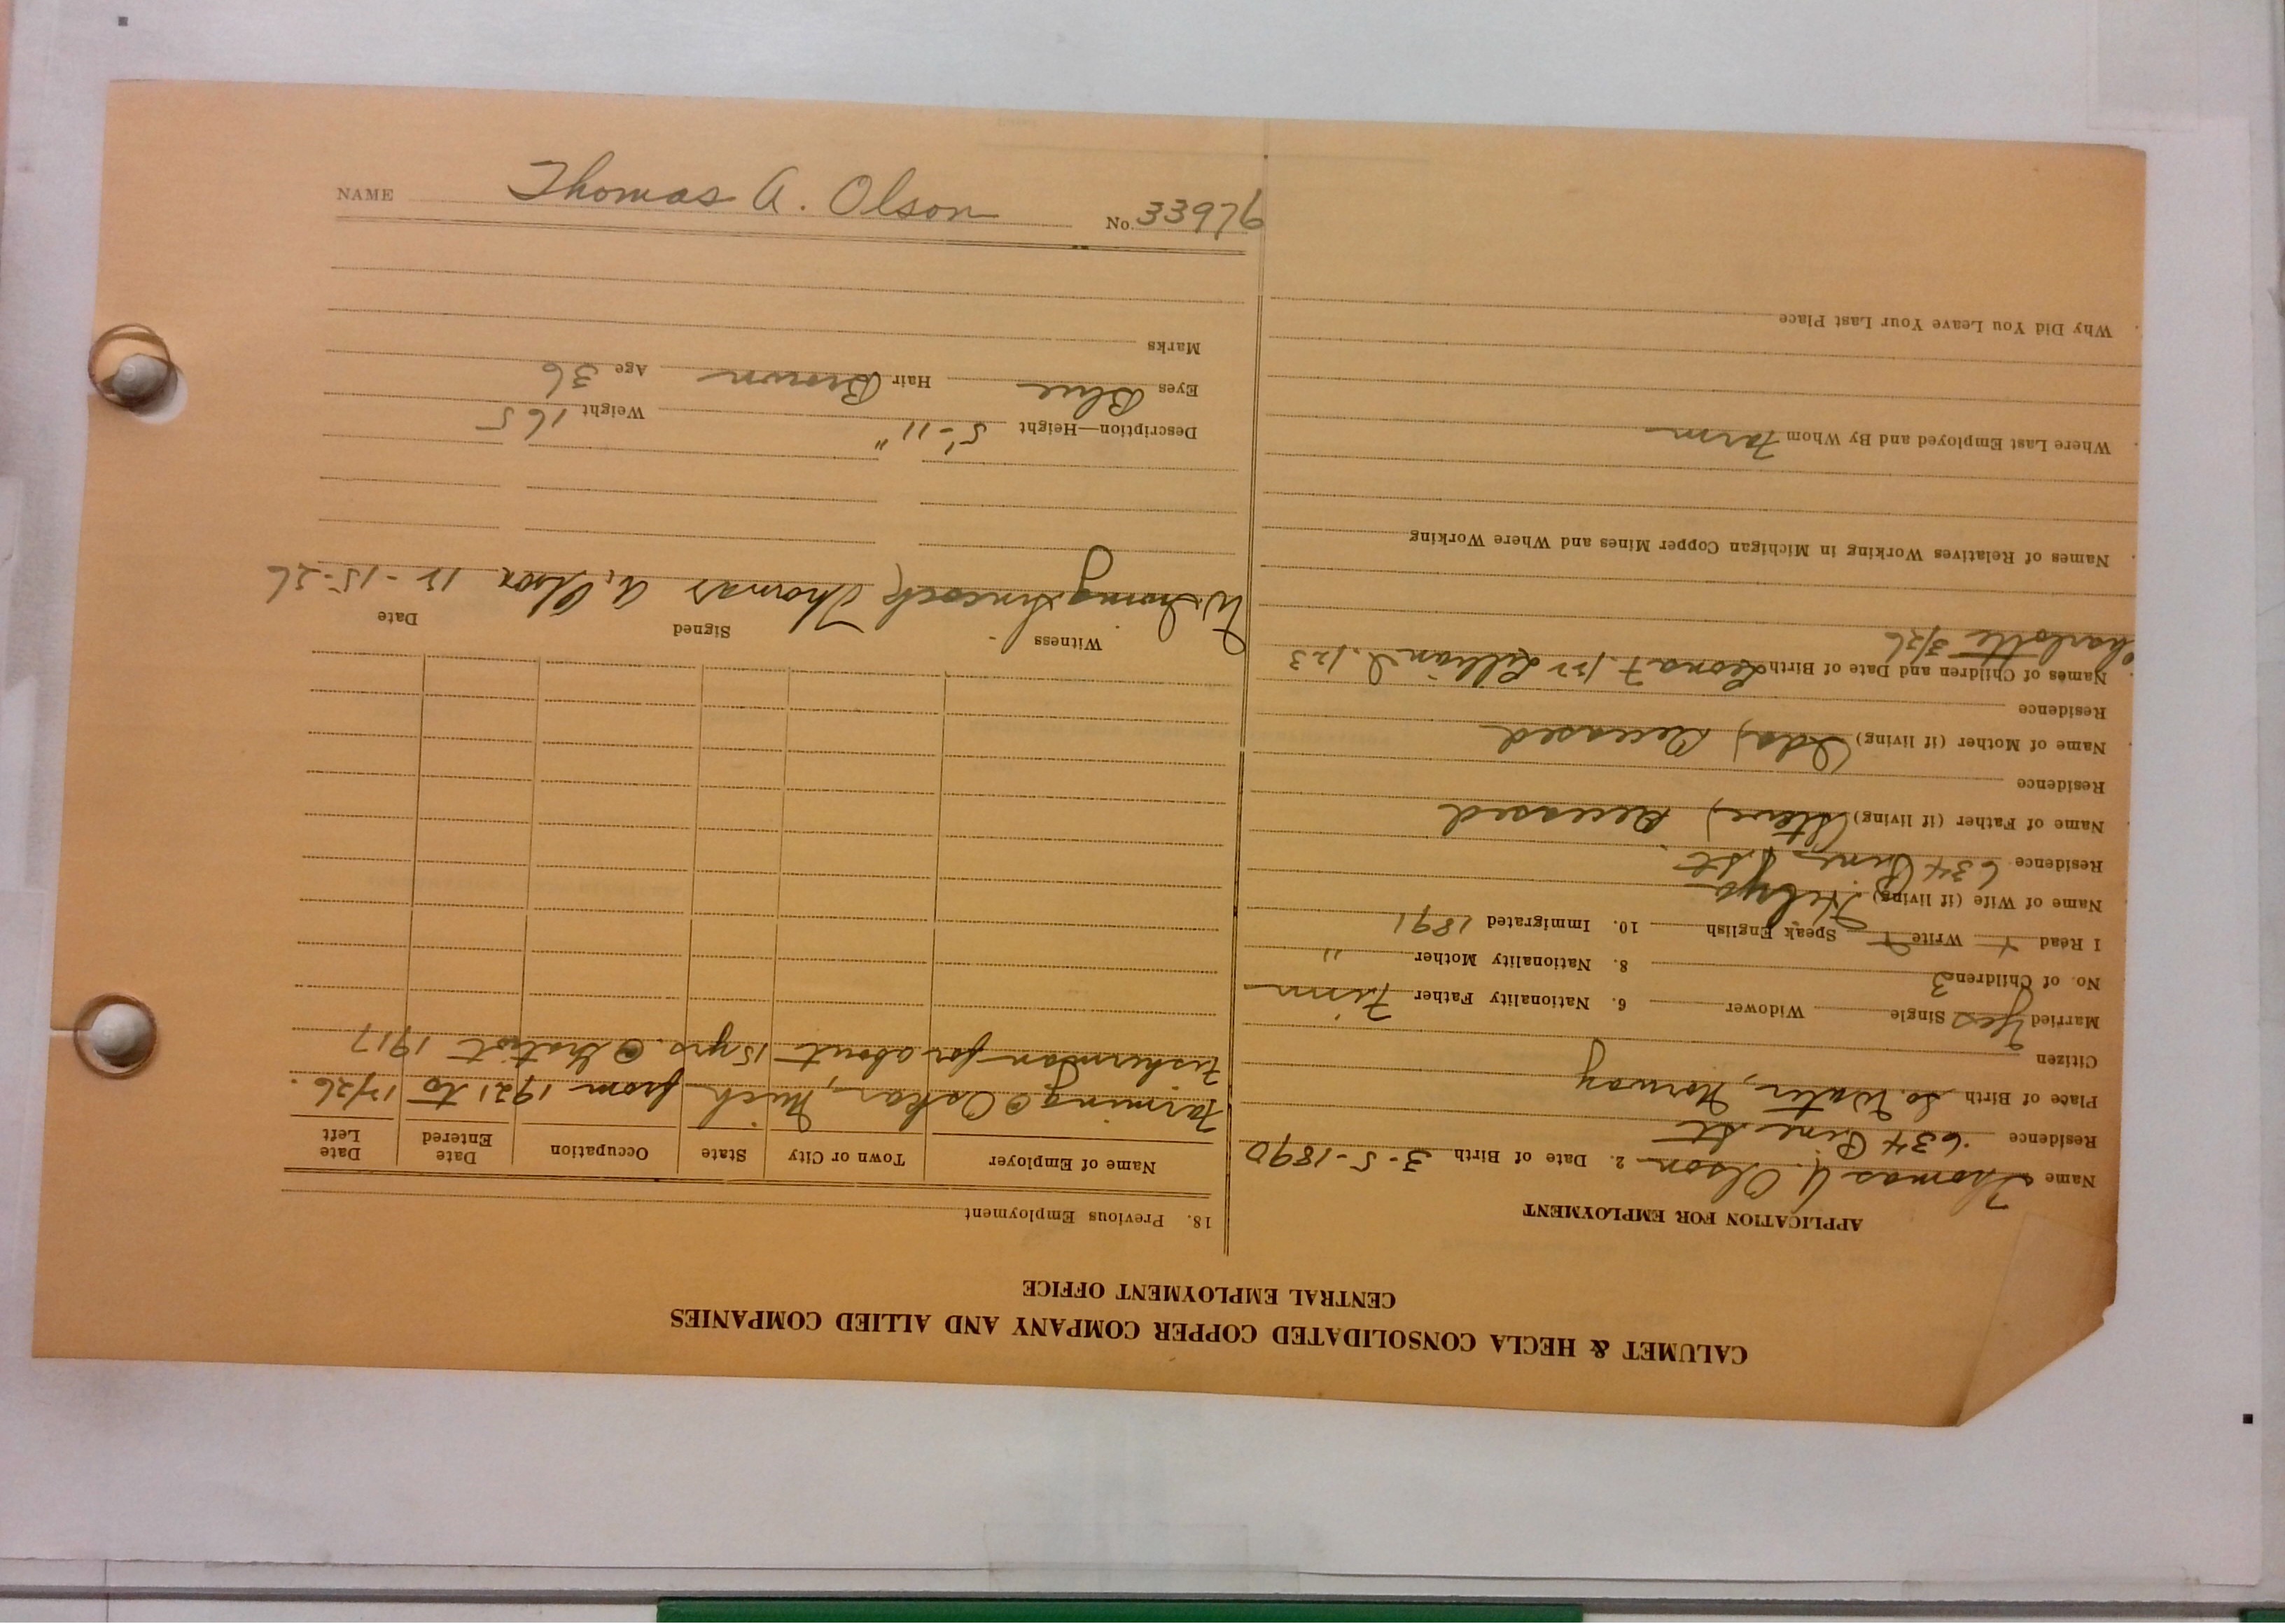 NAME Thomas A. Olson No. 33976
CALUMET & HECLA CONSOLIDATED COPPER COMPANY AND ALLIED COMPANIES
CENTRAL EMPLOYMENT OFFICE
APPLICATION FOR EMPLOYMENT
Name Thomas A. Olson 2. Date of Birth 3-5-1890
Residence 634 Pine St
Place of Birth So. Norway
Citizen
Married Yes Single Widower 6. Nationality Father Finn
No. of Children 3 8. Nationality Mother "
I Read + Write + Speak English 10. Immigrated 1891
Name of Wife (if living)
Residence 634 Pine St.
Name of Father (if living) (Steve) Deceased
Residence
Name of Mother (if living) (Ida) Deceased
Residence
Names of Children and Date of Birth Leona F. Lillian
Charlotte 3/26
Names of Relatives Working in Michigan Copper Mines and Where Working
Where Last Employed and By Whom Farm
Why Did You Leave Your Last Place
18. Previous Employment
Name of Employer Town or City State Occupation Date Entered Date Left
Farming @ Oskar, Mich from 1921 to 12/26.
Fisherman for about 15 yrs. @ 1917
Witness Signed Date
Thomas A. Olson 12-15-26
Description—Height 5'-11" Weight 165
Eyes Blue Hair Brown Age 36
Marks